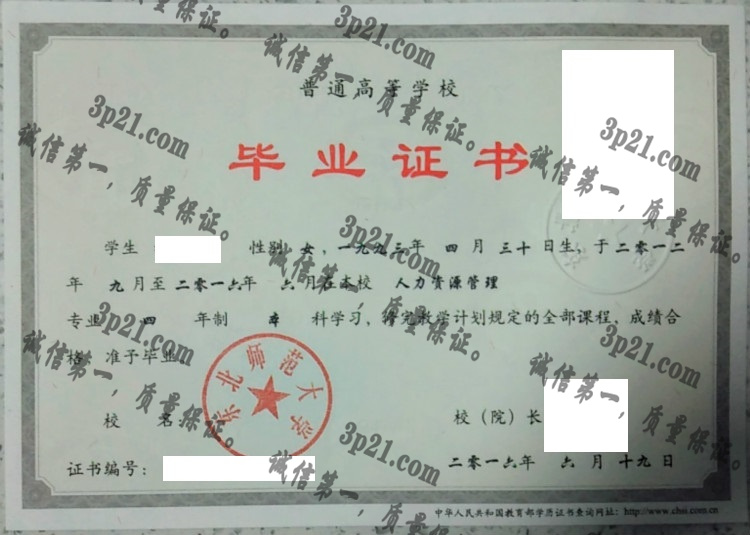 普通高等学校
毕业证书
学生 性别 女，一九九三年 四 月 三十 日生，于二零一二
年 九 月至 二零一六年 六 月在本校 人力资源管理
专业 四 年制 本 科学习，修完教学计划规定的全部课程，成绩合
格，准予毕业
东北师范大学
校 名
校（院）长
证书编号：
二零一六年 六 月 十九 日
中华人民共和国教育部学历证书查询网址：http://www.chsi.com.cn
3p21.com
诚信第一，质量保证。
3p21.com
诚信第一，质量保证。
3p21.com
诚信第一，质量保证。
3p21.com
诚信第一，质量保证。
3p21.com
诚信第一，质量保证。
3p21.com
诚信第一，质量保证。
3p21.com
诚信第一，质量保证。